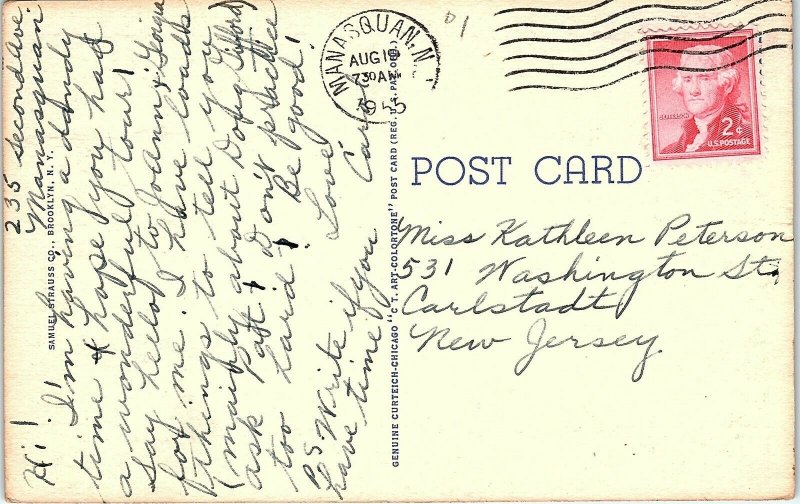 235 Second Ave.
Manasquan
Hi!
I'm having a dandy
time & hope you had
a wonderful tour!
Say hello to Joann & George
for me. I have loads
of things to tell you
(mainly about Doby Gifford)
ask Patt. Don't practice
too hard & Be good!
Love
Carol
PS Write if you
have time
SAMUEL STRAUSS CO., BROOKLYN, N. Y.
GENUINE CURTEICH-CHICAGO "C. T. ART-COLORTONE" POST CARD (REG. U.S. PAT. OFF.)
MANASQUAN, N.
AUG 19
730 AM
1955
01
JEFFERSON
2¢
U.S. POSTAGE
POST CARD
Miss Kathleen Peterson
531 Washington St.
Carlstadt
New Jersey